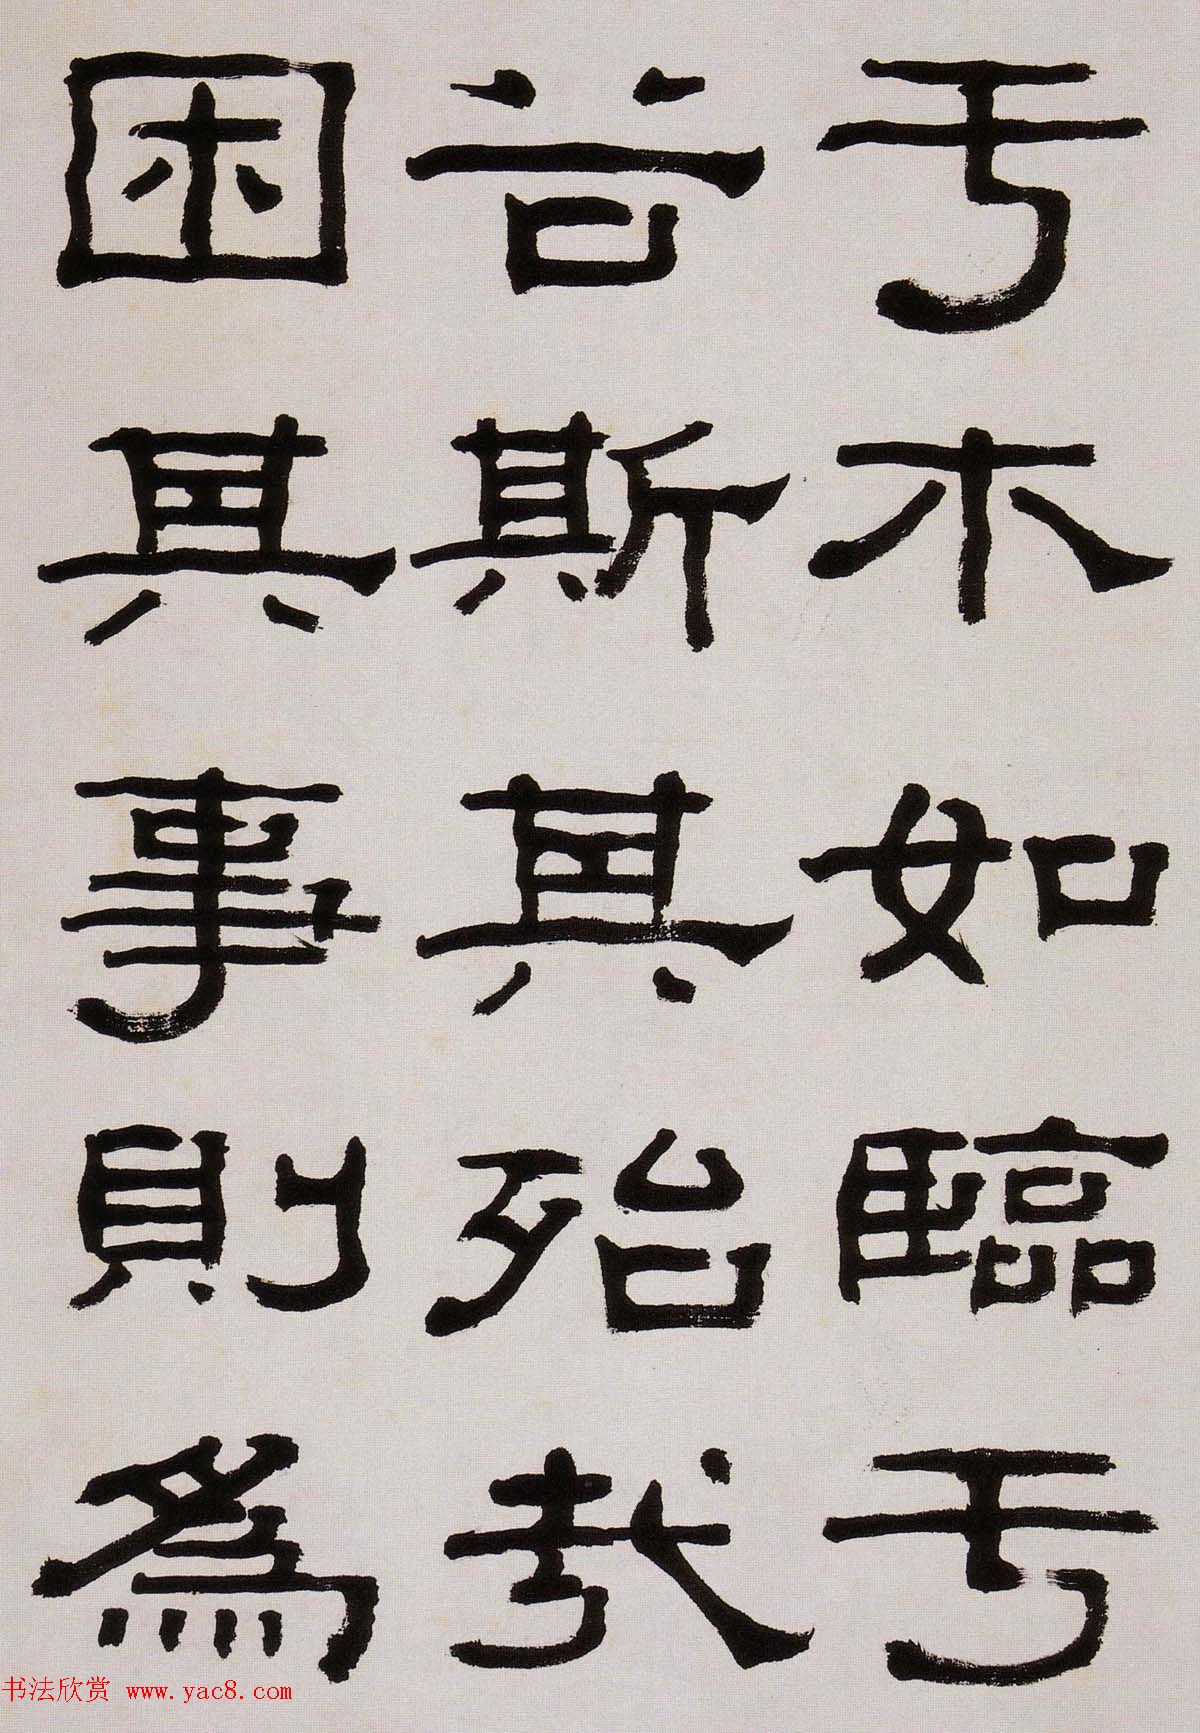 于木如臨于
谷斯其殆哉
困其事則爲
书法欣赏 www.yac8.com